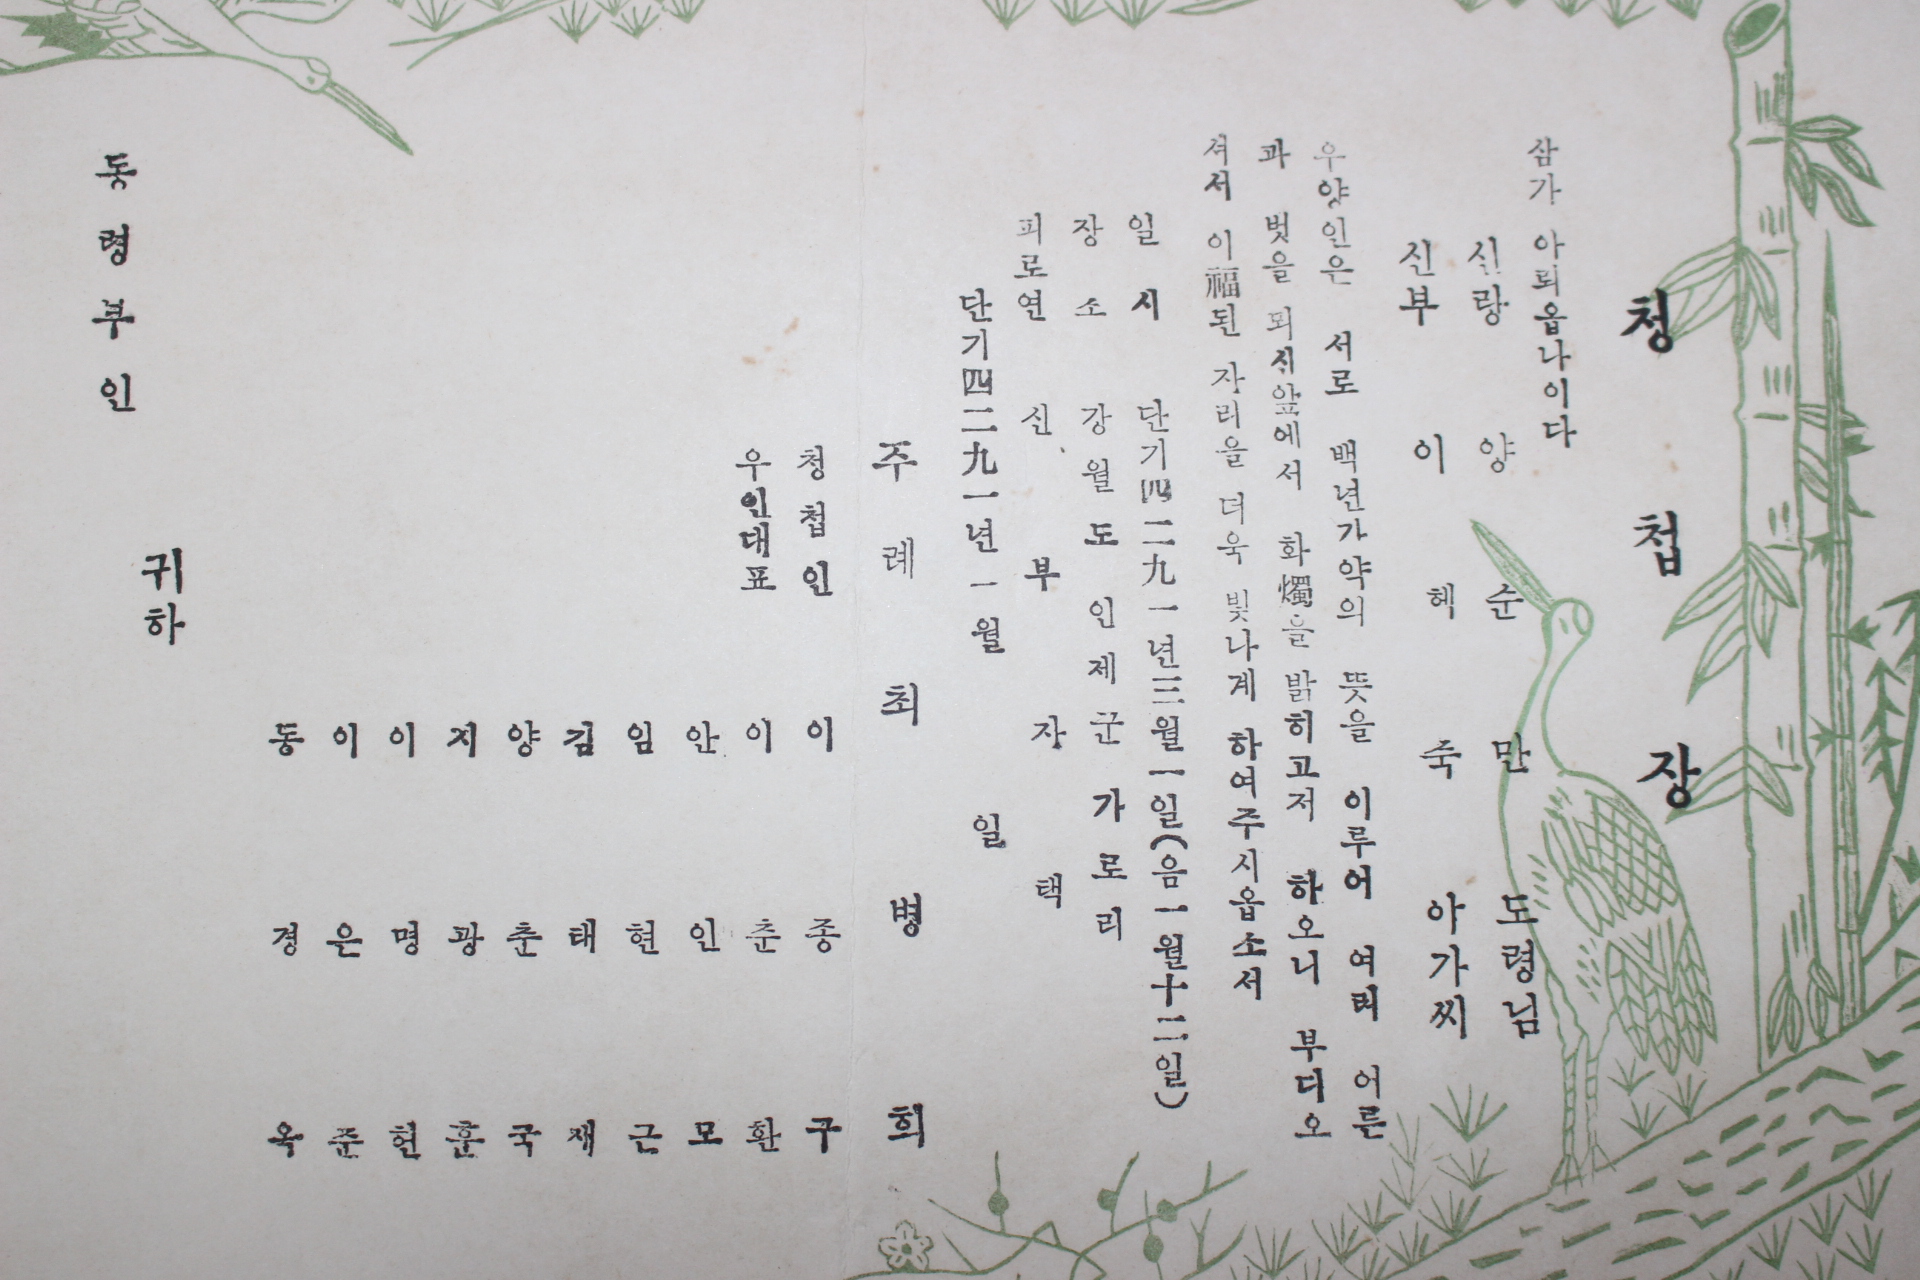 청첩장
삼가 아뢰옵나이다
신랑 양순만 도령님
신부 이혜숙 아가씨
우양인은 서로 백년가약의 뜻을 이루어 여러 어른
과 벗을 뫼시앞에서 화燭을 밝히고저 하오니 부디오
셔서 이福된 자리을 더욱 빛나게 하여주시옵소서
일시 단기四二九一년三월一일(음一월十二일)
장소 강월도 인제군 가로리
피로연 신부자택
단기四二九一년一월 일
주례 최병희
청첩인 이종구
우인대표 이춘환
안인모
임현근
김태재
양춘국
지광훈
이명헌
이은준
동경옥
귀하
동령부인